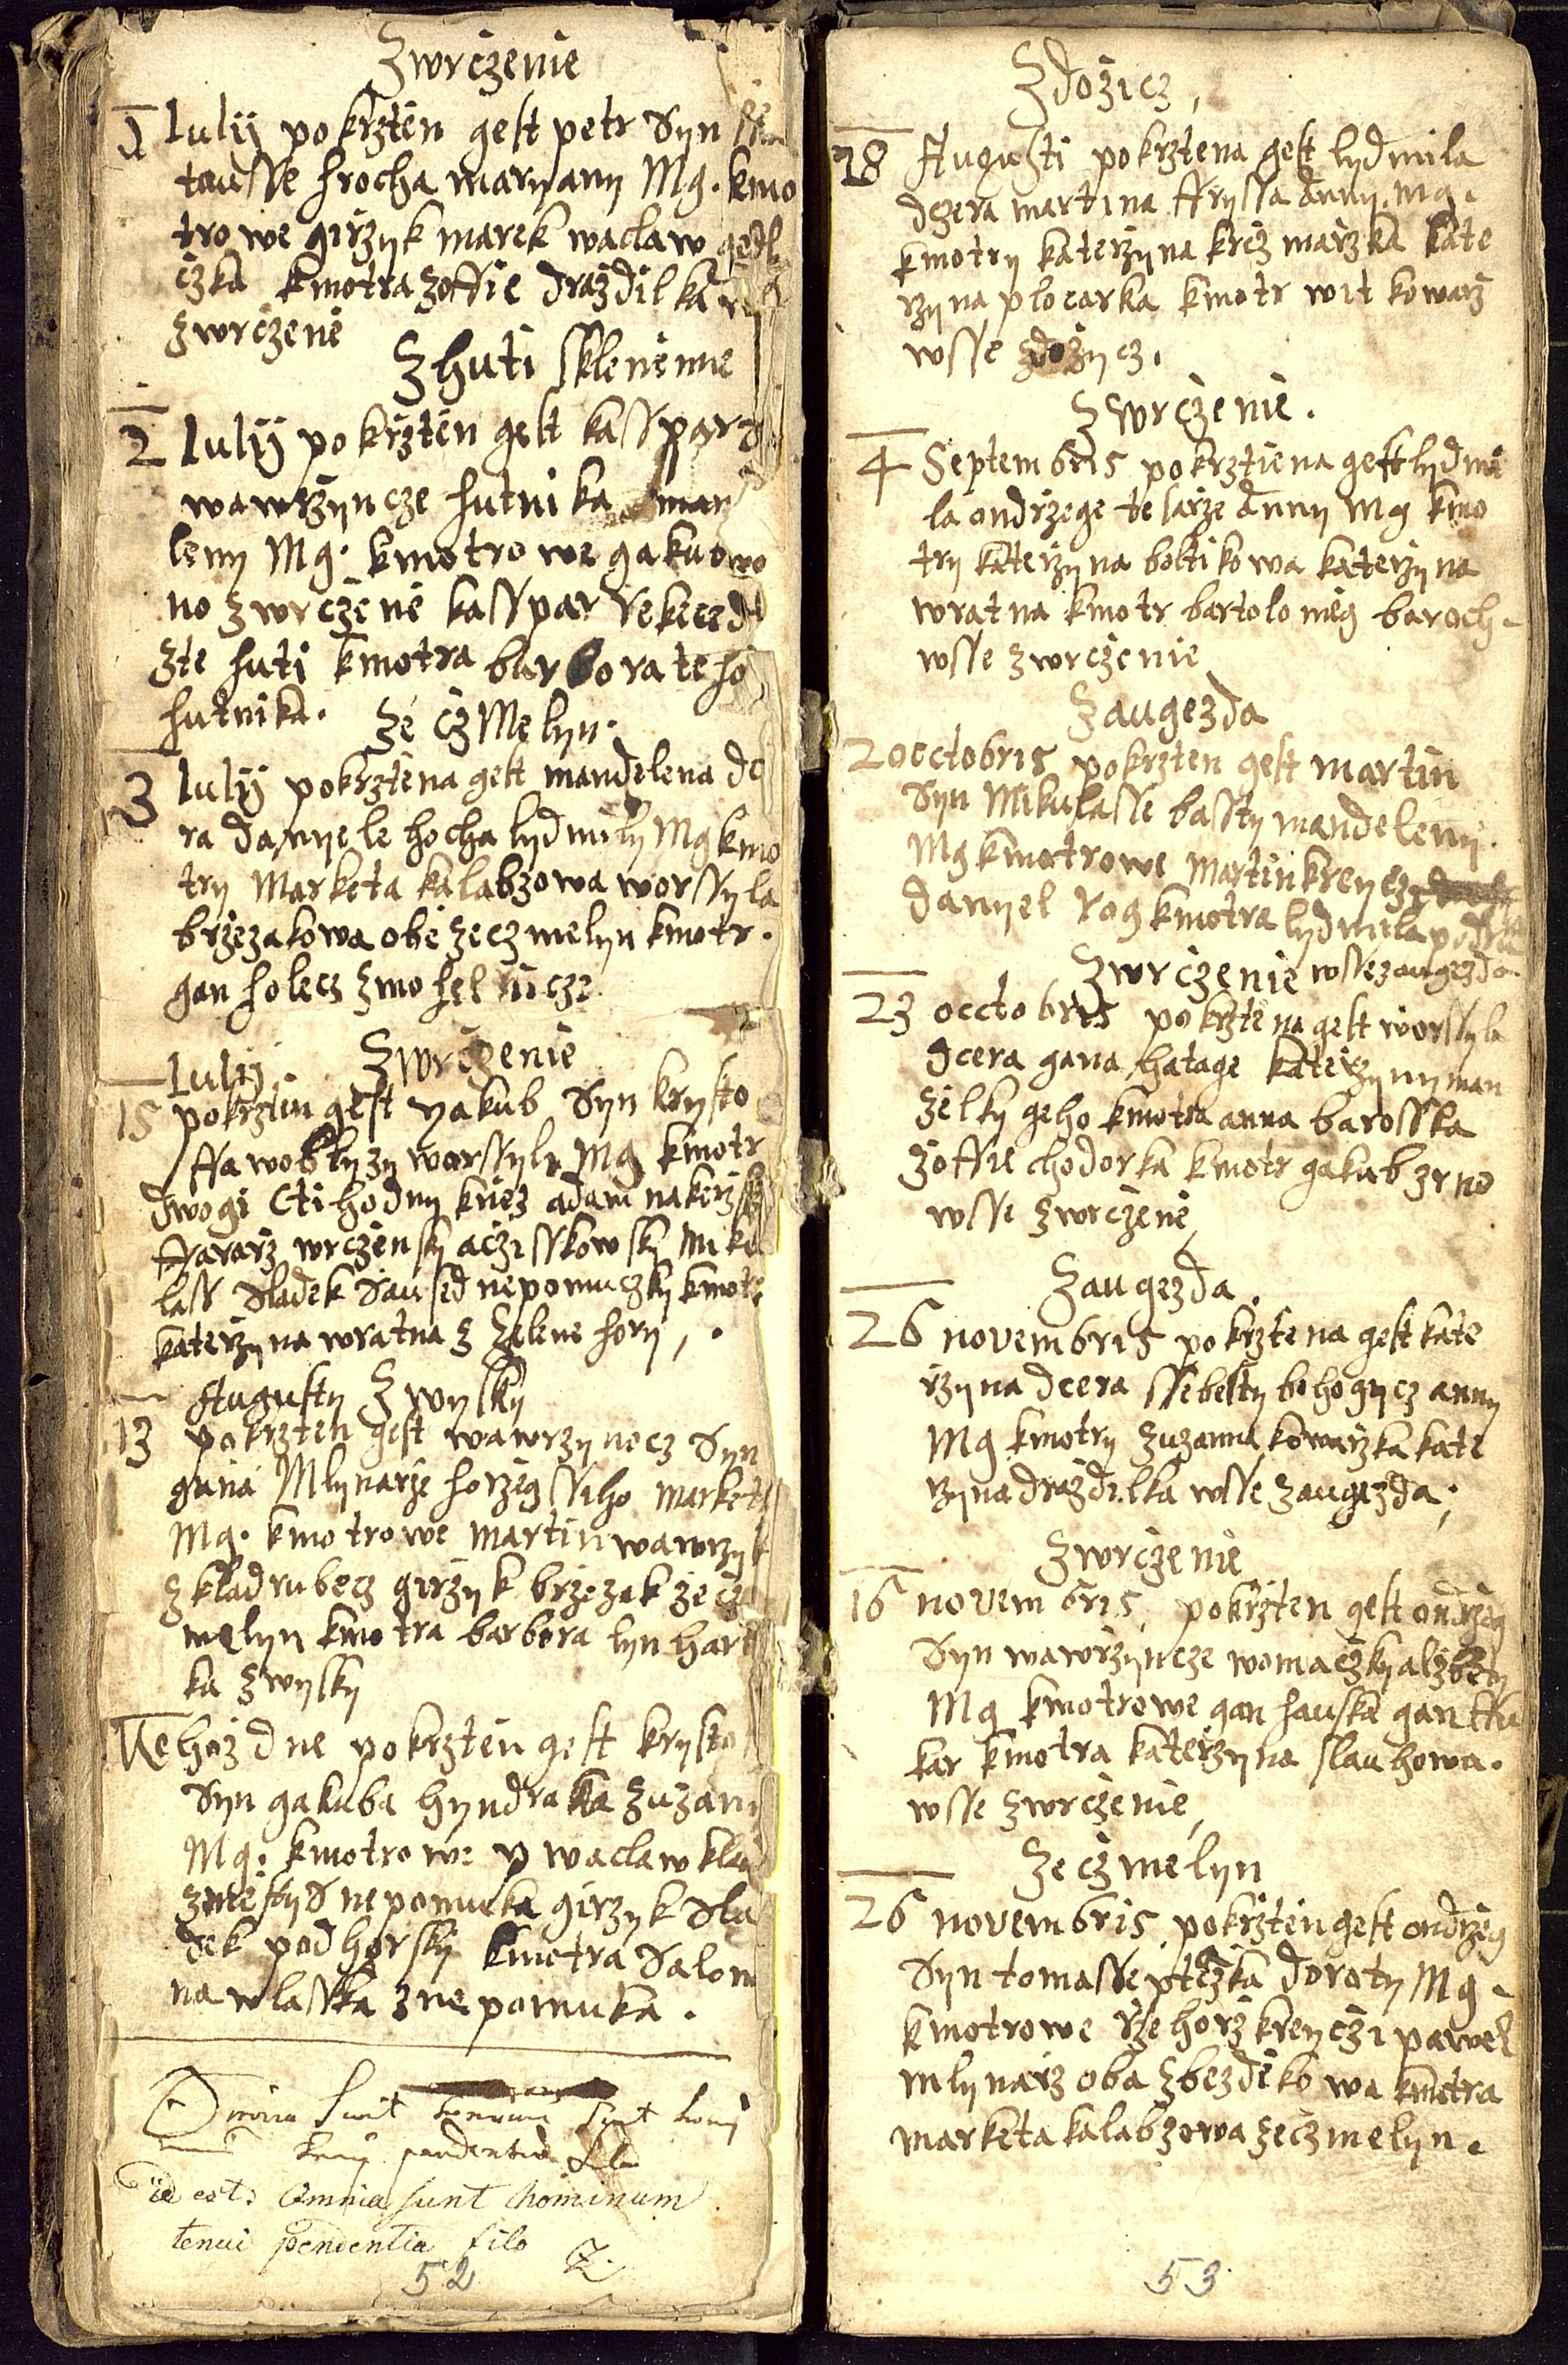 Zwrczenie
1 Iulij pokrzten gest petr Syn
tausse hrocha maryany Mg. kmo
trowe girzyk marek waclaw
czka kmotra zoffie drazdilka
zwrczene
Zhuti sklenenne
2 Iulij pokrzten gest kasspar
wawrzyncze hutnika man
leny Mg. kmotrowe gakub
no zwrczene kasspar
zte huti kmotra barbora teho
hutnika.
Ze czmelyn.
3 Iulij pokrztena gest mandelena dc
ra danyele hocha lydmily Mg kmo
try Marketa kalabzowa worssyla
brzezakowa obe zeczmelyn kmotr.
gan holecz zmohelnicze
Zwrczenie
Iulij
15 pokrzten gest yakub Syn krysto
ffa woblyzy worssyly Mg kmotr
dwogi Ctihodny kniez adam
ffararz wrczensky aczisskowsky mik
lass Sladek Saused nepomuczky kmotr
katerzyna wratna z zelene hory,.
Augusty Zwysky
13 pokrzten gest wawrzynecz Syn
gana Mlynarze horzegssiho market
Mg. kmotrowe martin wawrzy
zkladrubecz girzyk brzezak zecz
melyn kmotra barbora lynhart
ka zwysky
Tehoz dne pokrzten gest krysto
Syn gakuba hyndraka zuzany
Mg. kmotrowe p waclaw
zmesstyS nepomuka girzyk Sla
dek podhorsky kmotra Salom
na wlasska znepomuka.
id est: Omnia sunt hominum
tenui pendentia filo Z.
52
Zdozicz,
28 Augusti pokrztena gest lydmila
dczera martina ffryssa anny. mg.
kmotry katerzyna krczmarzka kate
rzyna plocarka kmotr wit kowarz
wsse zdozycz.
Zwrczenie.
4 Septembris pokrztiena gest lydmi
la ondrzege tesarze anny Mg kmo
try katerzyna boltikowa katerzyna
wratna kmotr bartolomeg baroch.
wsse zwrczenie
Zaugezda
2 occtobris pokrzten gest martin
Syn Mikulasse bassty mandeleny.
Mg kmotrowe martin kreycz
danyel rog kmotra lydmila
wsse zaugezda
Zwrczenie
23 occtobris pokrztena gest worssyla
dcera gana hatage katerzyny man
zelky geho kmotra anna barosska
zoffie chodorka kmotr gakub zrno
wsse zwrczene,
Zaugezda.
26 novembris pokrztena gest kate
rzyna dcera ssebesty bohogycz anny
Mg kmotry zuzanna kowarzka kate
rzyna drazdilka wsse zaugezda;
Zwrczenie
16 novembris pokrzten gest ondrzeg
Syn wawrzyncze womaczky alzbety
Mg kmotrowe gan hauska gan ffu
kar kmotra katerzyna slauhowa.
wsse zwrczenie,
Ze czmelyn
26 novembris pokrzten gest ondrzeg
Syn tomasse ptezka doroty Mg.
kmotrowe rzehorz kreyczi pawel
mlynarz oba zbezdekowa kmotra
marketa kalabzowa zeczmelyn.
53